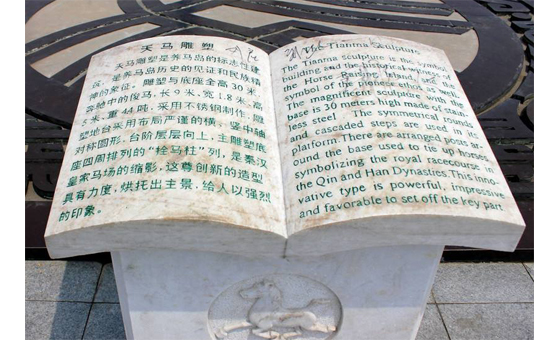 天马雕塑
天马雕塑是养马岛的标志性建
筑，是养马岛历史的见证和民族精
神的象征。雕塑与底座全高30米，
奔驰中的俊马，长9米，宽1.8米，高
米，重44吨，采用不锈钢制作，雕
塑地台采用布局严谨的横、竖中轴
对称图形，台阶层层向上，主雕塑底
座四周排列的“拴马柱”列，是秦汉
皇家马场的缩影，这尊创新的造型
具有力度，烘托出主景，给人以强烈
的印象。
The Tianma Sculpture
The Tianma sculpture is the symbolic
building and the historical witness of
the Horse Raising Island, and the
symbol of the pioneer ethos.
The magnificent sculpture with the
base is 30 meters high made of stain-
less steel The symmetrical pattern
and cascaded steps are used in its
platform.There are arranged posts ar-
ound the base used to tie up horses,
symbolizing the royal racecourse in
the Qin and Han Dynasties.This inno-
vative type is powerful, impressive
and favorable to set off the key part